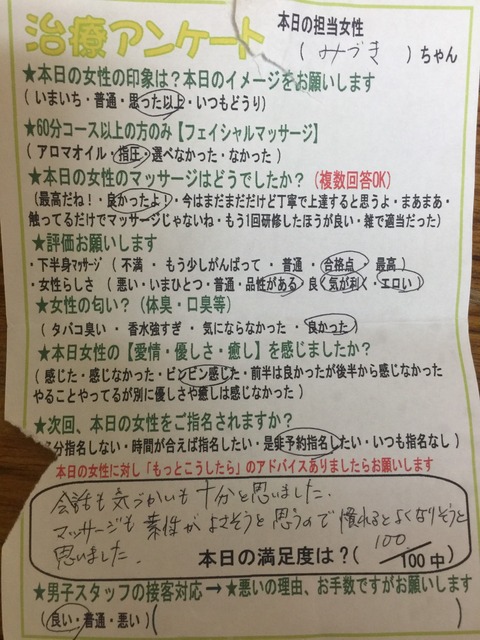 治療アンケート
本日の担当女性
( みづき )ちゃん
★本日の女性の印象は?本日のイメージをお願いします
( いまいち・普通・思った以上・いつもどうり)
★60分コース以上の方のみ【フェイシャルマッサージ】
( アロマオイル・指圧・選べなかった・なかった )
★本日の女性のマッサージはどうでしたか?(複数回答OK)
(最高だね!・良かったよ!・今はまだまだだけど丁寧で上達すると思うよ・まあまあ・
触ってるだけでマッサージじゃないね・もう1回研修したほうが良い・雑で適当だった)
★評価お願いします
・下半身マッサージ ( 不満 ・ もう少しがんばって ・ 普通 ・ 合格点 ・ 最高 )
・女性らしさ ( 悪い・いまひとつ・普通・品性がある・良く気が利く・エロい )
★女性の匂い?(体臭・口臭等)
( タバコ臭い ・ 香水強すぎ ・ 気にならなかった ・ 良かった )
★本日女性の【愛情・優しさ・癒し】を感じましたか?
( 感じた・感じなかった・ビンビン感じた・前半は良かったが後半から感じなかった
やることやってるが別に優しさや癒しは感じなかった )
★次回、本日の女性をご指名されますか?
分指名しない・時間が合えば指名したい・是非予約指名したい・いつも指名なし )
本日の女性に対し「もっとこうしたら」のアドバイスありましたらお願いします
会話も気づかいも十分と思いました.
マッサージも素性がよさそうと思うので慣れるとよくなりそうと
思いました.
本日の満足度は?( 100 /100中)
★男子スタッフの接客対応 → ★悪いの理由、お手数ですがお願いします
(良い・普通・悪い) ( )